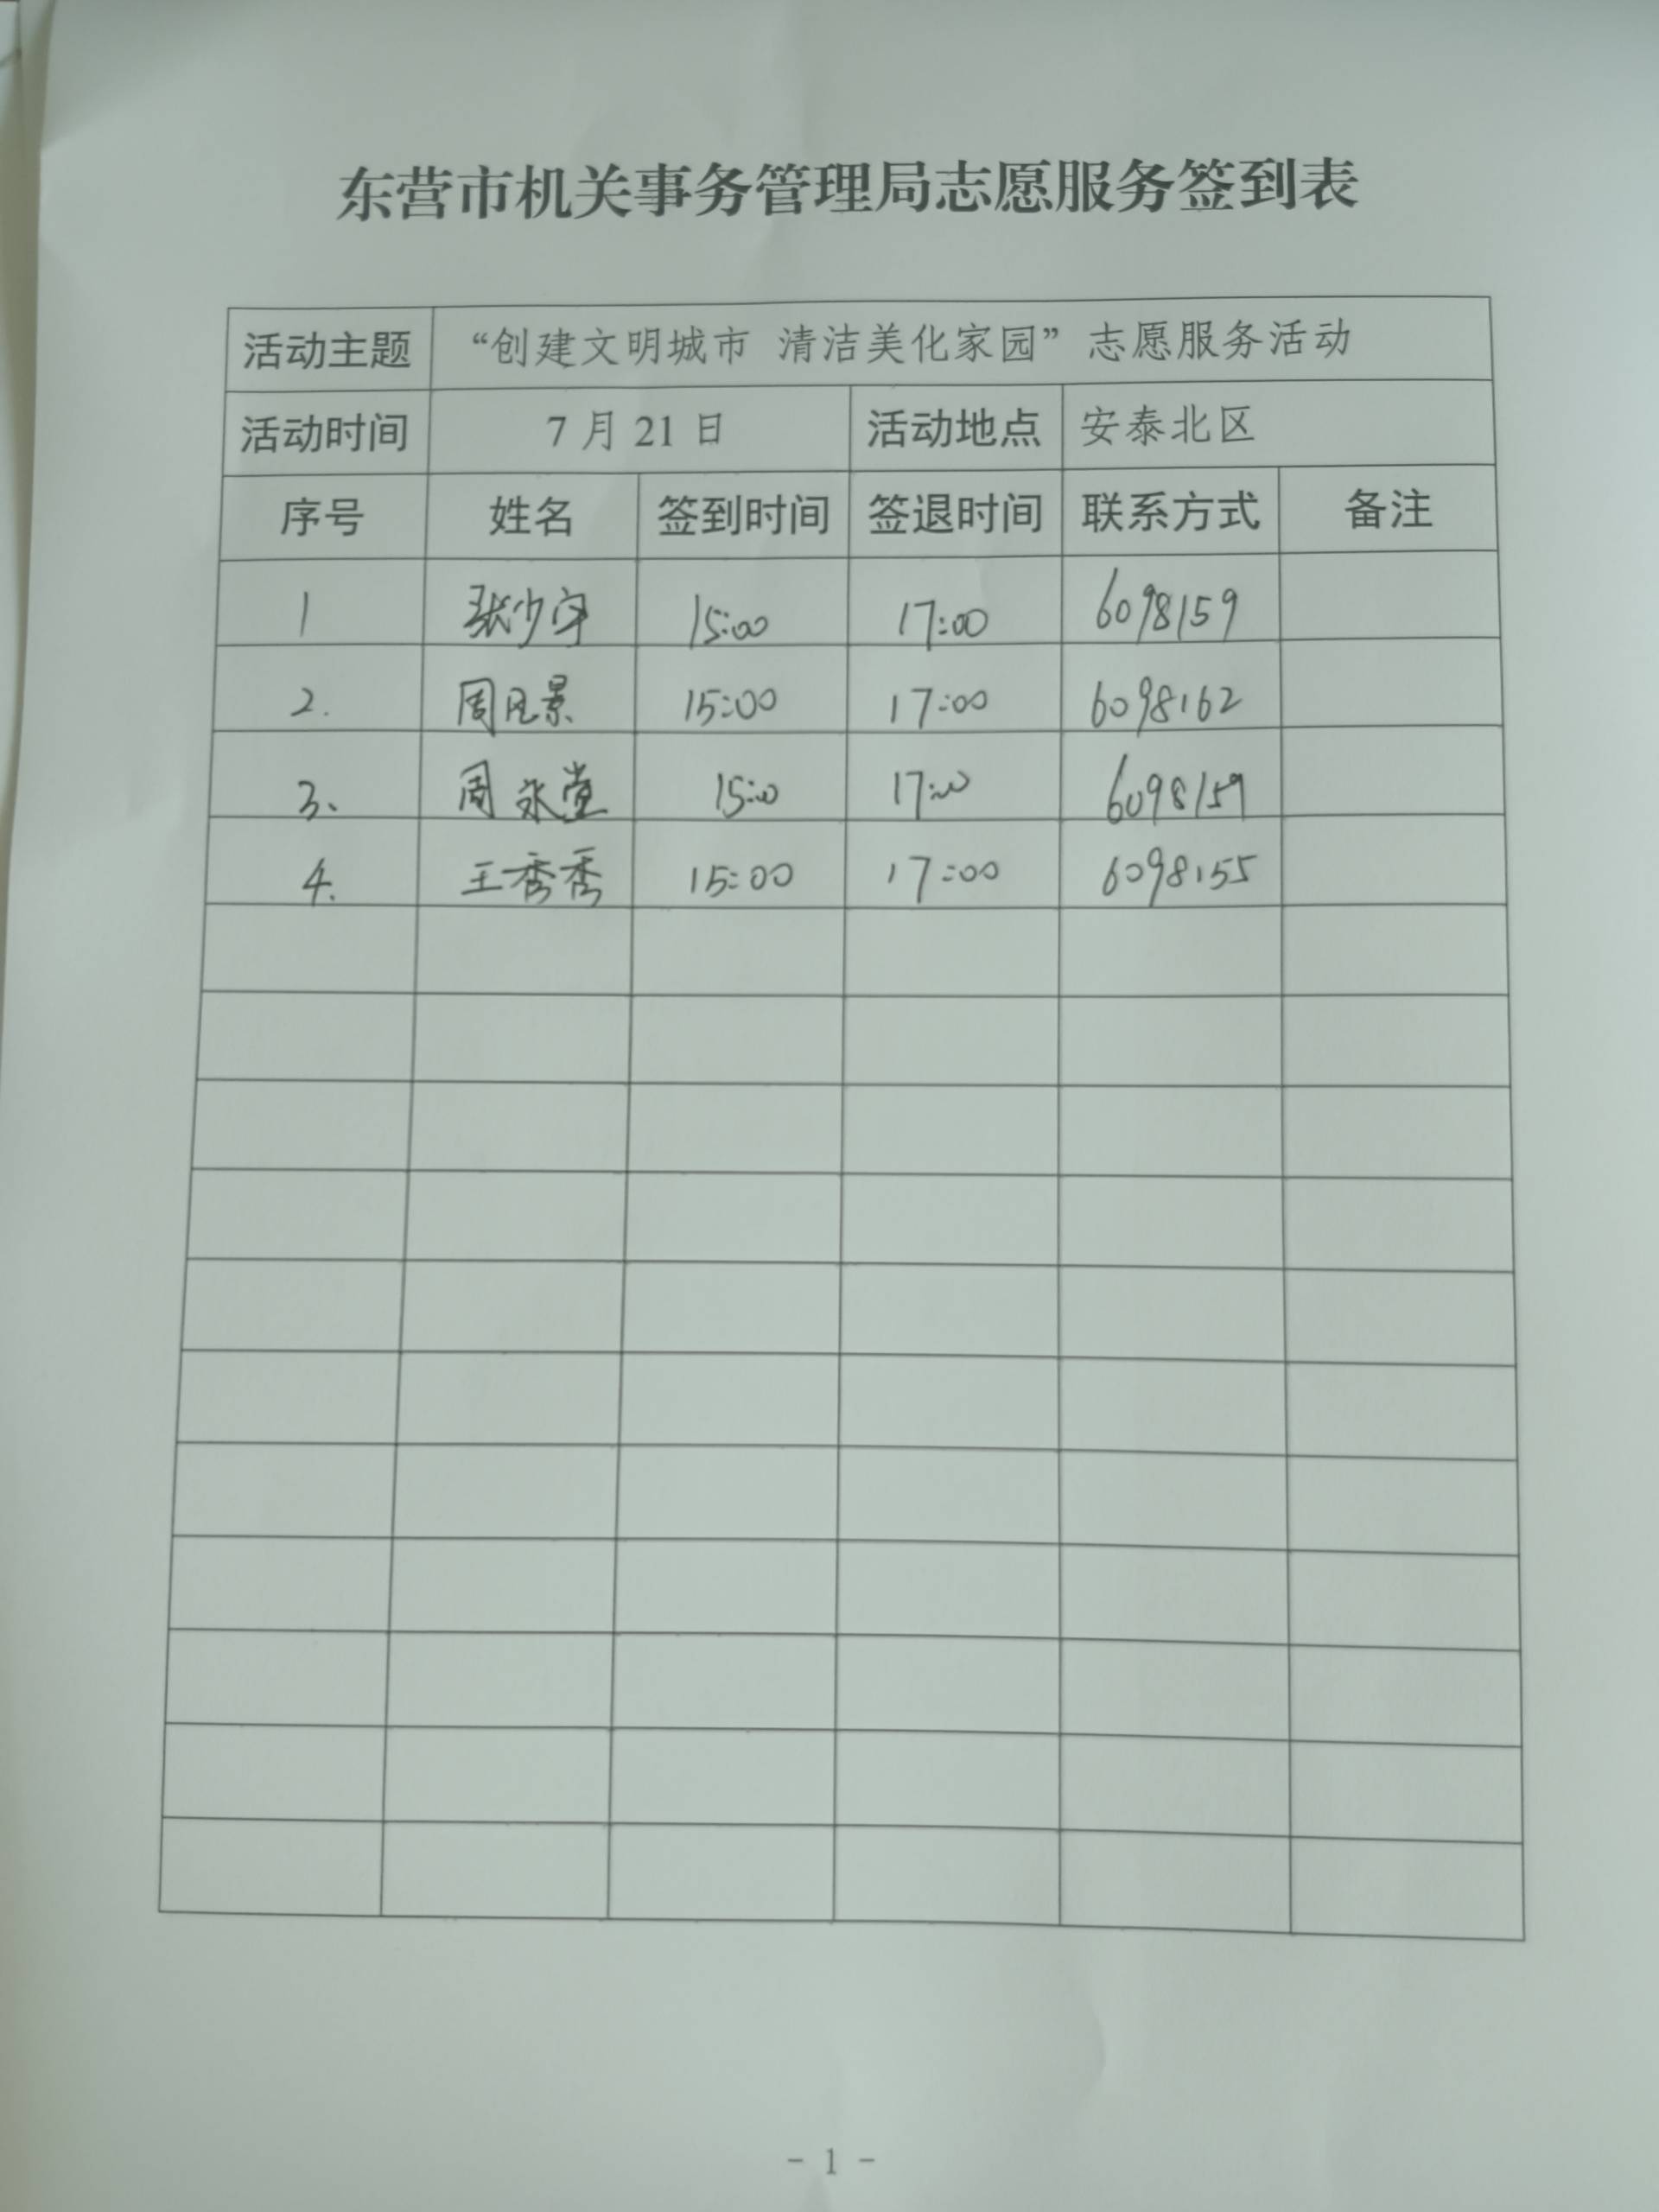 东营市机关事务管理局志愿服务签到表
活动主题 “创建文明城市 清洁美化家园”志愿服务活动
活动时间 7月21日 活动地点 安泰北区
序号 姓名 签到时间 签退时间 联系方式 备注
1 张少 15:00 17:00 6098159
2. 周风景 15:00 17:00 6098162
3、 周永堂 15:00 17:00 6098159
4. 王秀秀 15:00 17:00 6098155
- 1 -